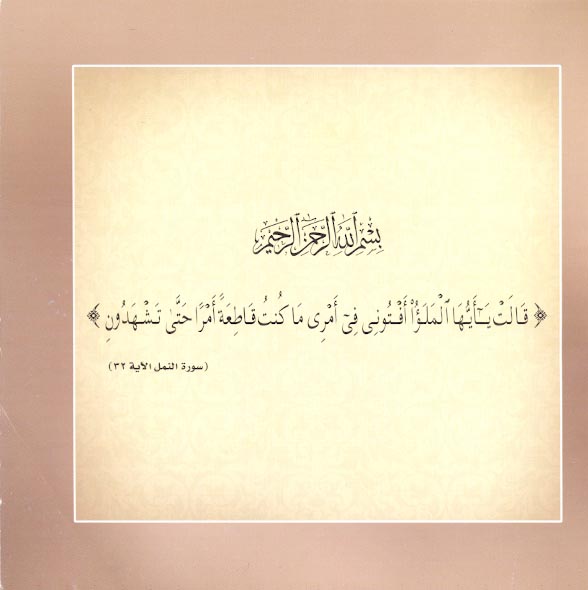 بِسْمِ ٱللَّهِ ٱلرَّحْمَٰنِ ٱلرَّحِيمِ
﴿ قَالَتْ يَٰٓأَيُّهَا ٱلْمَلَؤُا۟ أَفْتُونِى فِىٓ أَمْرِى مَا كُنتُ قَاطِعَةً أَمْرًا حَتَّىٰ تَشْهَدُونِ ﴾
(سورة النمل الآية ٣٢)